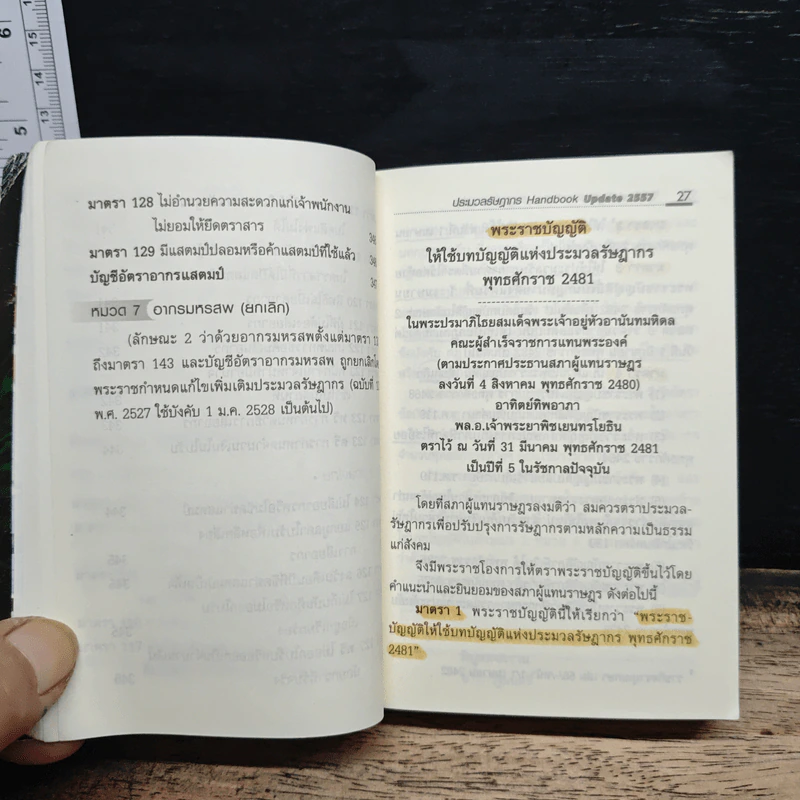 มาตรา 128 ไม่อำนวยความสะดวกแก่เจ้าพนักงาน
ไม่ยอมให้ยึดตราสาร
มาตรา 129 มีแสตมป์ปลอมหรือค้าแสตมป์ที่ใช้แล้ว
บัญชีอัตราอากรแสตมป์
หมวด 7 อากรมหรสพ (ยกเลิก)
(ลักษณะ 2 ว่าด้วยอากรมหรสพตั้งแต่มาตรา
ถึงมาตรา 143 และบัญชีอัตราอากรมหรสพ ถูกยกเลิก
พระราชกำหนดแก้ไขเพิ่มเติมประมวลรัษฎากร (ฉบับที่
พ.ศ. 2527 ใช้บังคับ 1 ม.ค. 2528 เป็นต้นไป)
ประมวลรัษฎากร Handbook Update 2557 27
พระราชบัญญัติ
ให้ใช้บทบัญญัติแห่งประมวลรัษฎากร
พุทธศักราช 2481
ในพระปรมาภิไธยสมเด็จพระเจ้าอยู่หัวอานันทมหิดล
คณะผู้สำเร็จราชการแทนพระองค์
(ตามประกาศประธานสภาผู้แทนราษฎร
ลงวันที่ 4 สิงหาคม พุทธศักราช 2480)
อาทิตย์ทิพอาภา
พล.อ.เจ้าพระยาพิชเยนทรโยธิน
ตราไว้ ณ วันที่ 31 มีนาคม พุทธศักราช 2481
เป็นปีที่ 5 ในรัชกาลปัจจุบัน
โดยที่สภาผู้แทนราษฎรลงมติว่า สมควรตราประมวล-
รัษฎากรเพื่อปรับปรุงการรัษฎากรตามหลักความเป็นธรรม
แก่สังคม
จึงมีพระราชโองการให้ตราพระราชบัญญัติขึ้นไว้โดย
คำแนะนำและยินยอมของสภาผู้แทนราษฎร ดังต่อไปนี้
มาตรา 1 พระราชบัญญัตินี้ให้เรียกว่า "พระราช-
บัญญัติให้ใช้บทบัญญัติแห่งประมวลรัษฎากร พุทธศักราช
2481"